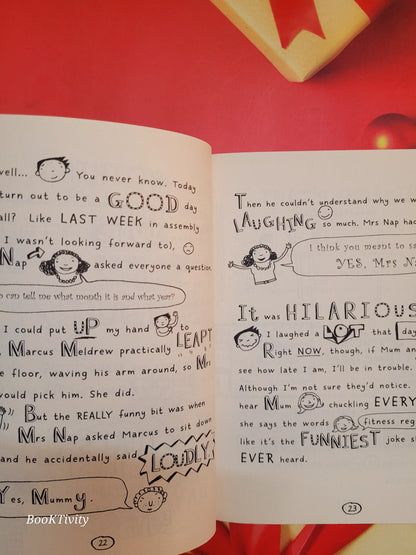 well... You never know. Today
turn out to be a GOOD day
all? Like LAST WEEK in assembly
I wasn't looking forward to),
Nap asked everyone a question
can tell me what month it is and what year?
I could put UP my hand to
MARCUS MELDREW practically LEAPT
e floor, waving his arm around, so MRS
would pick him. She did.
BUT the REALLY funny bit was when
MRS Nap asked Marcus to sit down
and he accidentally said LOUDLY,
Yes, Mummy.
22
BooKTivity
Then he couldn't understand why we w
LAUGHING so much. Mrs Nap had
I think you meant to sa
YES, Mrs Na
It was HILARIOUS
I laughed a LOT that day
Right NOW, though, if Mum an
see how late I am, I'll be in trouble.
Although I'm not sure they'd notice.
hear Mum chuckling EVERY
she says the words fitness reg
like it's the FUNNIEST joke s
EVER heard.
23